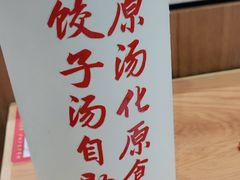 原汤化原食
饺子汤自